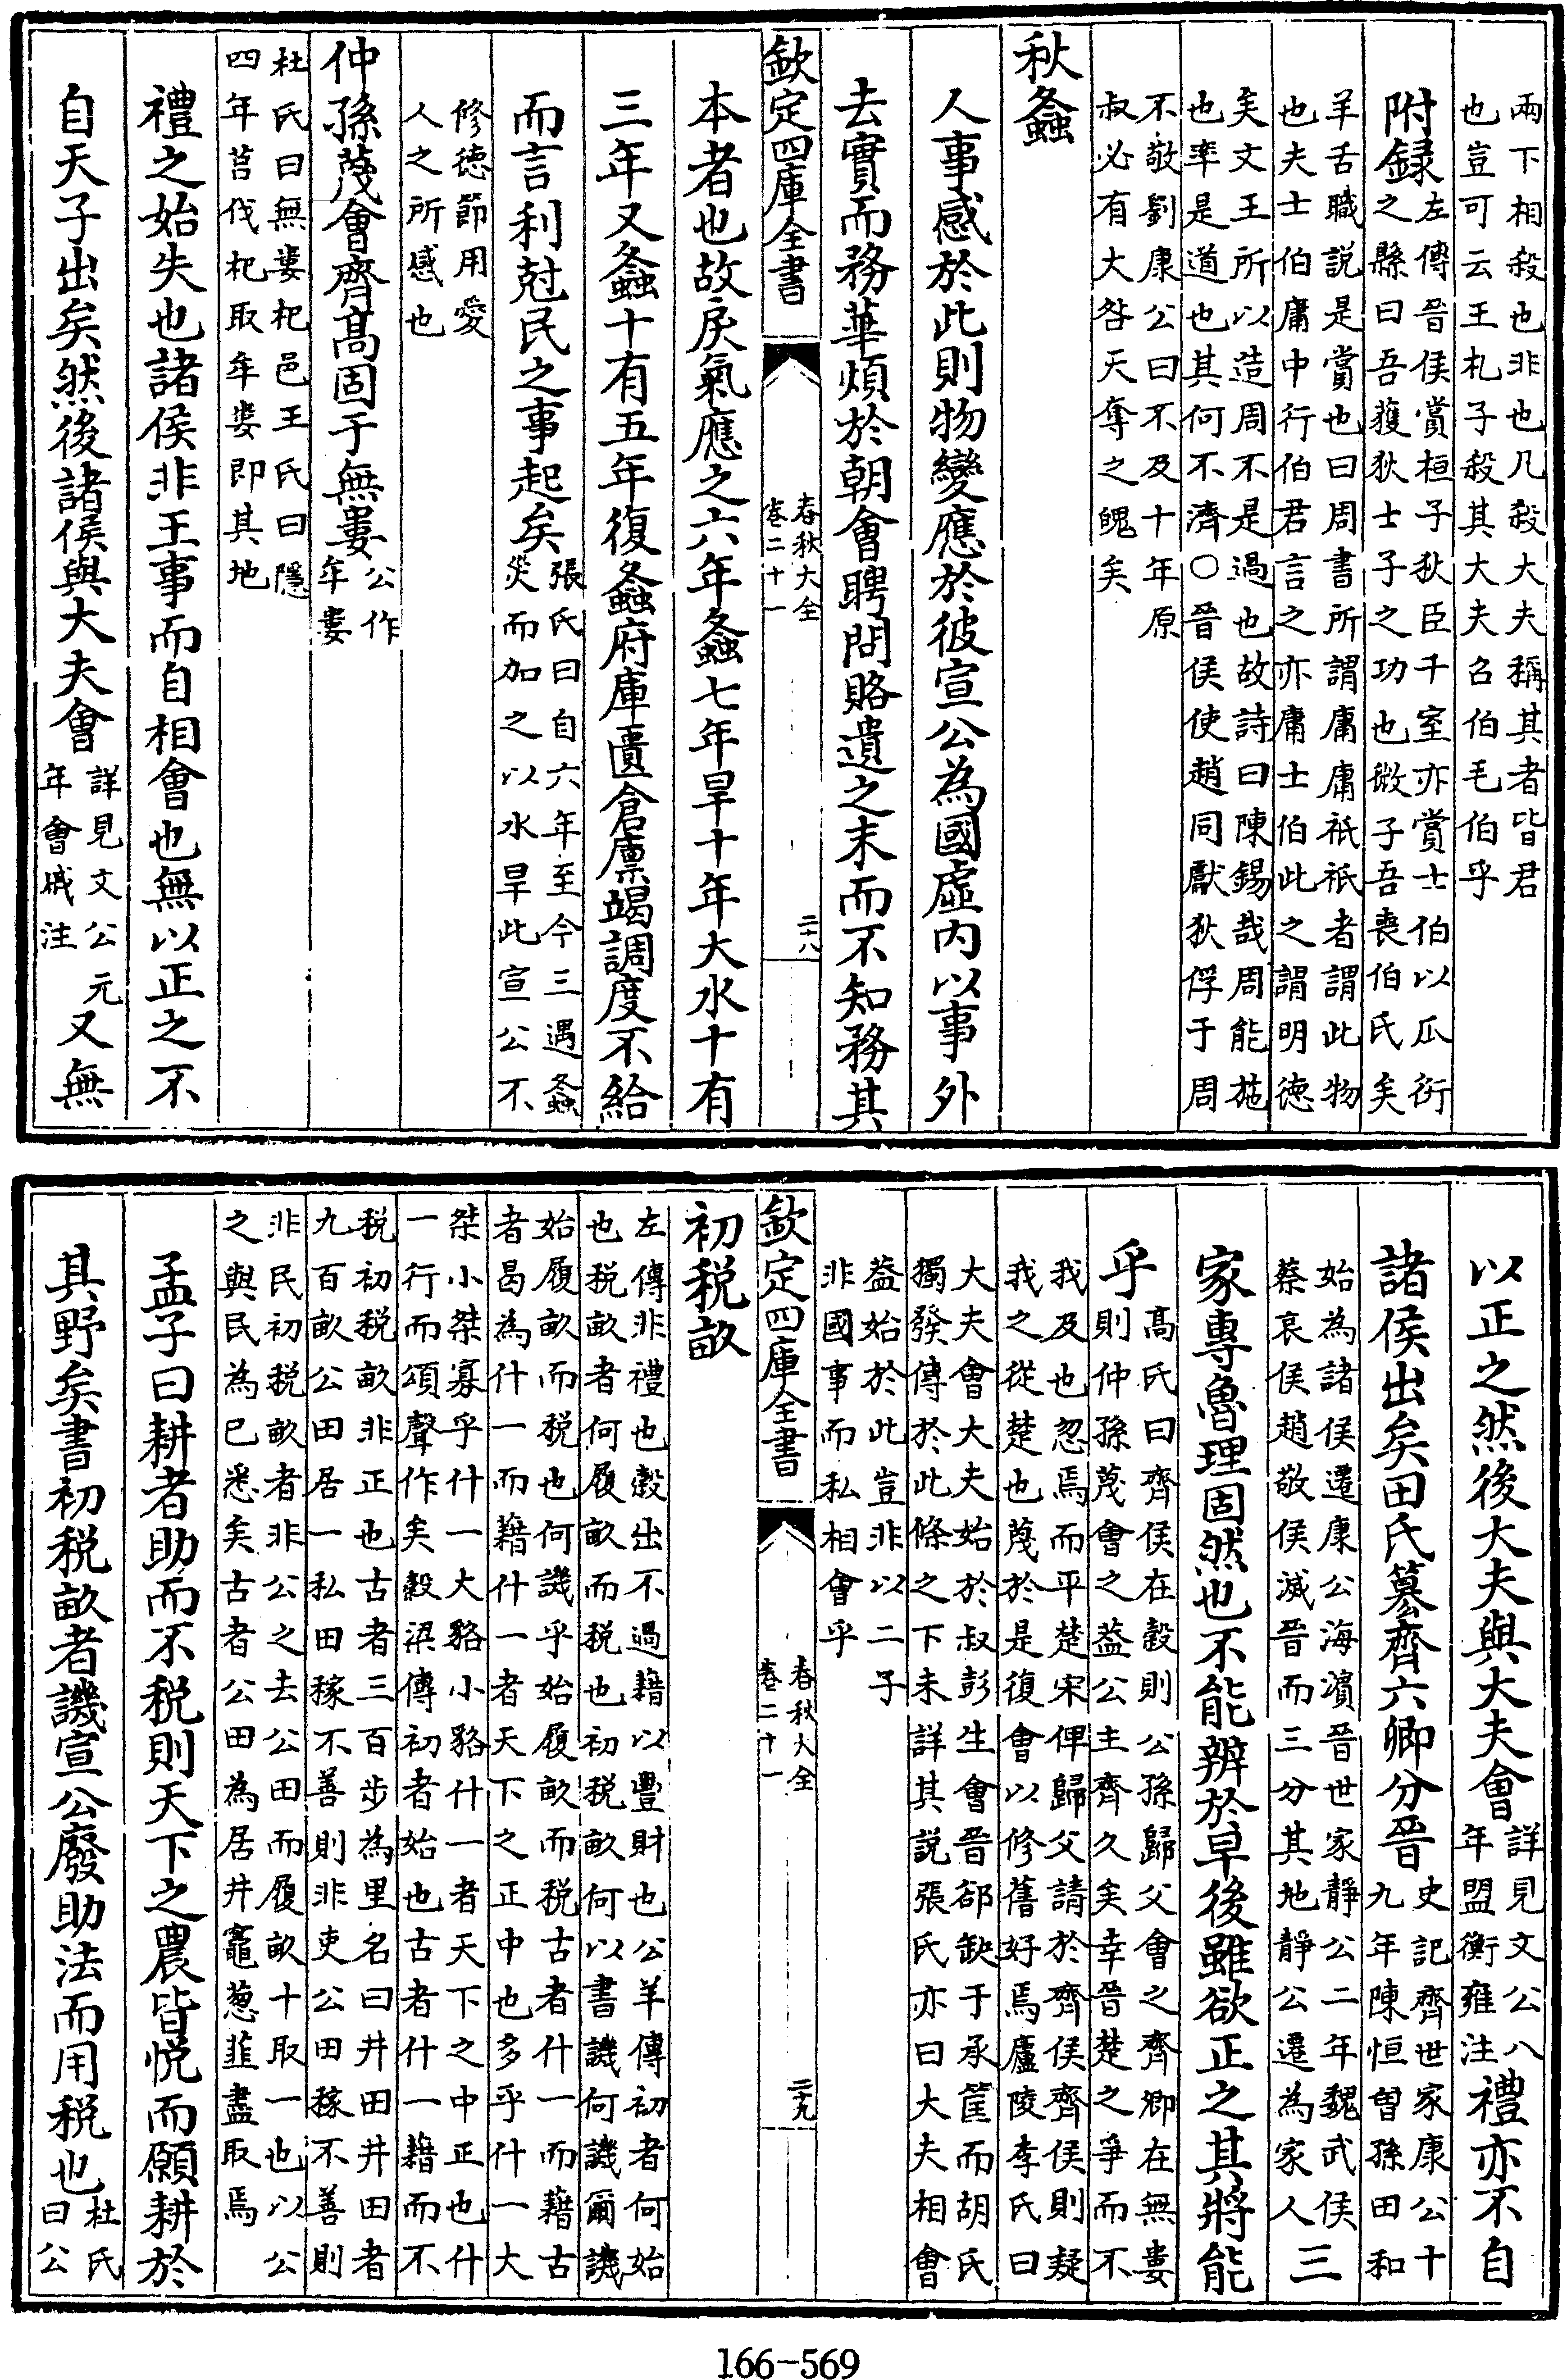 兩下相殺也非也凡殺大夫稱其者皆君
也豈可云王札子殺其大夫召伯毛伯乎
附録
左傳晉侯賞桓子狄臣千室亦賞士伯以瓜衍
之縣曰吾獲狄士子之功也微子吾喪伯氏矣
羊舌職說是賞也曰周書所謂庸庸祇祇者謂此物
也夫士伯庸中行伯君言之亦庸士伯此之謂明徳
矣文王所以造周不是過也故詩曰陳錫哉周能施
也率是道也其何不濟○晉侯使趙同獻狄俘于周
不敬劉康公曰不及十年原
叔必有大咎天奪之魄矣
秋螽
人事感於此則物變應於彼宣公為國虛内以事外
去實而務華煩於朝會聘問賂遺之末而不知務其
欽定四庫全書
春秋大全
卷二十一
二十八
本者也故戾氣應之六年螽七年旱十年大水十有
三年又螽十有五年復螽府庫匱倉廪竭調度不給
而言利尅民之事起矣
張氏曰自六年至今三遇螽
災而加之以水旱此宣公不
修徳節用愛
人之所感也
仲孫蔑會齊髙固于無婁
公作
牟婁
杜氏曰無婁杞邑王氏曰隱
四年莒伐杞取牟婁即其地
禮之始失也諸侯非王事而自相會也無以正之不
自天子出矣然後諸侯與大夫會
詳見文公元
年會戚注
又無
以正之然後大夫與大夫會
詳見文公八
年盟衡雍注
禮亦不自
諸侯出矣田氏簒齊六卿分晉
史記齊世家康公十
九年陳恒曽孫田和
始為諸侯遷康公海濵晉世家靜公二年魏武侯
蔡哀侯趙敬侯滅晉而三分其地靜公遷為家人
三
家專魯理固然也不能辨於早後雖欲正之其將能
乎
髙氏曰齊侯在穀則公孫歸父會之齊卿在無婁
則仲孫蔑會之葢公主齊久矣幸晉楚之爭而不
我及也忽焉而平楚宋俾歸父請於齊侯齊侯則疑
我之從楚也蔑於是復會以修舊好焉廬陵李氏曰
大夫會大夫始於叔彭生會晉郤缺于承筐而胡氏
獨發傳於此條之下未詳其説張氏亦曰大夫相會
葢始於此豈非以二子
非國事而私相會乎
欽定四庫全書
春秋大全
卷二十一
二十九
初税畝
左傳非禮也穀出不過藉以豐財也公羊傳初者何始
也税畝者何履畝而税也初税畝何以書譏何譏爾譏
始履畝而税也何譏乎始履畝而税古者什一而藉古
者曷為什一而藉什一者天下之正中也多乎什一大
桀小桀寡乎什一大貉小貉什一者天下之中正也什
一行而頌聲作矣穀梁傳初者始也古者什一藉而不
税初税畝非正也古者三百步為里名曰井田井田者
九百畝公田居一私田稼不善則非吏公田稼不善則
非民初税畝者非公之去公田而履畝十取一也以公
之與民為已悉矣古者公田為居井竈葱韮盡取焉
孟子曰耕者助而不税則天下之農皆悅而願耕於
其野矣書初税畝者譏宣公廢助法而用税也
杜氏
曰公
166-569